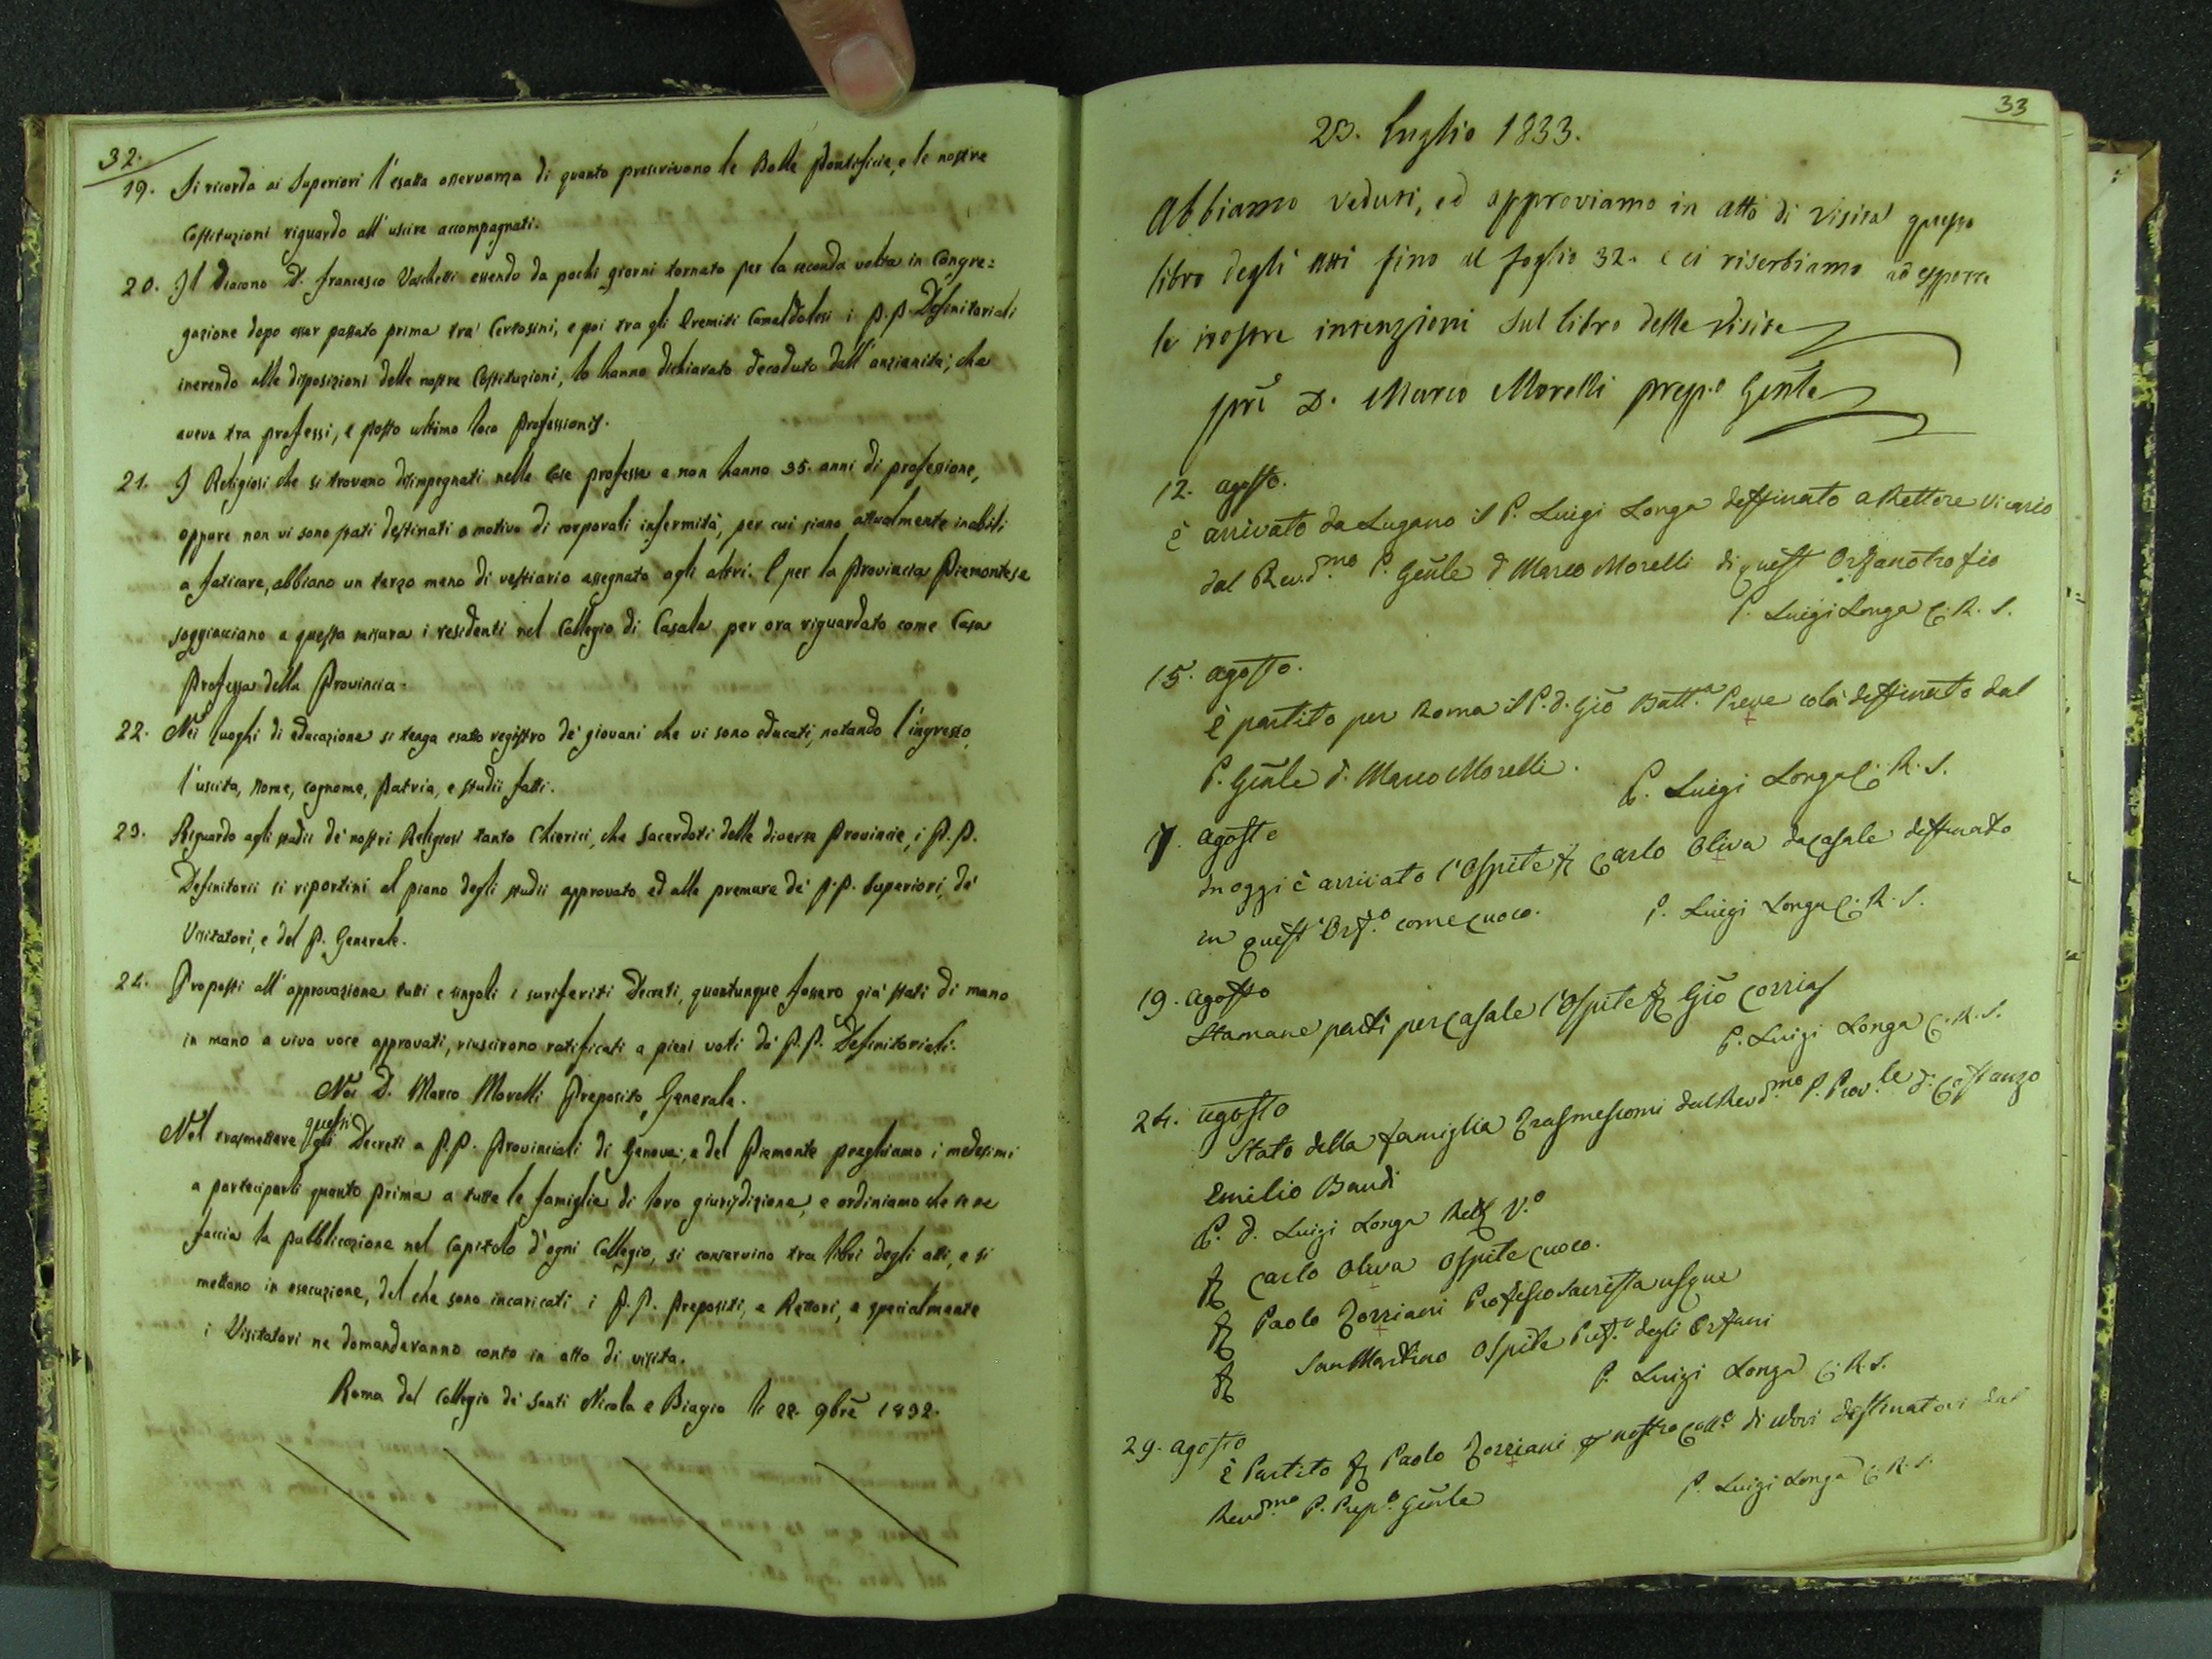 32.
19. Si ricorda ai Superiori l'esatta osservanza di quanto prescrivono le Bolle Pontificie, e le nostre
Costituzioni riguardo all'uscire accompagnati.
20. Il Diacono D. Francesco Vaschetti essendo da pochi giorni tornato per la seconda volta in Congre=
gazione dopo esser passato prima tra' Certosini, e poi tra gli Eremiti Camaldolesi i P.P. Definitoriali
inerendo alle disposizioni delle nostre Costituzioni, lo hanno dichiarato decaduto dall'anzianità, che
aveva tra professi, e posto ultimo loco Professionis.
21. I Religiosi che si trovano disimpegnati nelle Case professe e non hanno 35. anni di professione,
oppure non vi sono stati destinati a motivo di corporali infermità, per cui siano attualmente inabili
a faticare, abbiano un terzo meno di vestiario assegnato agli altri. E per la Provincia Piemontese
soggiacciano a questa misura i residenti nel Collegio di Casale per ora riguardato come Casa
Professa della Provincia.
22. Nei luoghi di educazione si tenga esatto registro de' giovani che vi sono educati, notando l'ingresso,
l'uscita, Nome, cognome, Patria, e studii fatti.
23. Riguardo agli studii de' nostri Religiosi tanto Chierici, che Sacerdoti delle diverse Provincie, i P.P.
Definitorii si riportini al piano degli studii approvato ed alle premure de' P.P. Superiori, de'
Visitatori, e del P. Generale.
24. Proposti all'approvazione tutti e singoli i suriferiti Decreti, quantunque fossero già stati di mano
in mano a viva voce approvati, riuscirono ratificati a pieni voti da' P.P. Definitoriali.
Noi D. Marco Morelli Preposito Generale.
questi
Nel trasmettere gli Decreti a P.P. Provinciali di Genova, e del Piemonte preghiamo i medesimi
a parteciparli quanto prima a tutte le famiglie di loro giurisdizione, e ordiniamo che se ne
faccia la pubblicazione nel Capitolo d'ogni Collegio, si conservino tra libri degli atti, e si
mettano in esecuzione, del che sono incaricati i P.P. Prepositi, e Rettori, e specialmente
i Visitatori ne domanderanno conto in atto di visita.
Roma dal Collegio de' Santi Nicola e Biagio li 22. 9bre 1832.
33
23. Luglio 1833.
Abbiamo veduti, ed approviamo in atto di visita questo
libro degli atti fino al foglio 32. e ci riserbiamo ad esporre
le nostre intenzioni sul libro delle visite
D. Marco Morelli prep.o Gnle
12. agosto.
È arrivato da Lugano il P. Luigi Longa destinato a Rettore Vicario
dal Rev.dmo P. Genle d Marco Morelli di quest Orfanotrofio
P. Luigi Longa C. R. S.
15. agosto.
È partito per Roma il P. d. Gio Batt.a Preve colà destinato dal
P. Genle d. Marco Morelli.
P. Luigi Longa C. R. S.
17. agosto
In oggi è arrivato l'Ospite fr Carlo Oliva da Casale destinato
in quest'Orf.o come cuoco.
P. Luigi Longa C. R. S.
19. agosto
Stamane partì per Casale l'Ospite fr Gio Corrias
P. Luigi Longa C. R. S.
24. agosto
Stato della famiglia trasmessomi dal Rev.dmo P. Prov.le d. Costanzo
Emilio Baudi
P. d. Luigi Longa Rett V.o
fr Carlo Oliva Ospite cuoco.
fr Paolo Torriani Professo Sacrista usque
fr San Martino Ospite Pref.o degli Orfani
P. Luigi Longa C. R. S.
29. agosto
È Partito fr Paolo Torriani nostro Coll.o di Novi destinatovi dal
Revd.mo P. Prep.o Genle
P. Luigi Longa C. R. S.